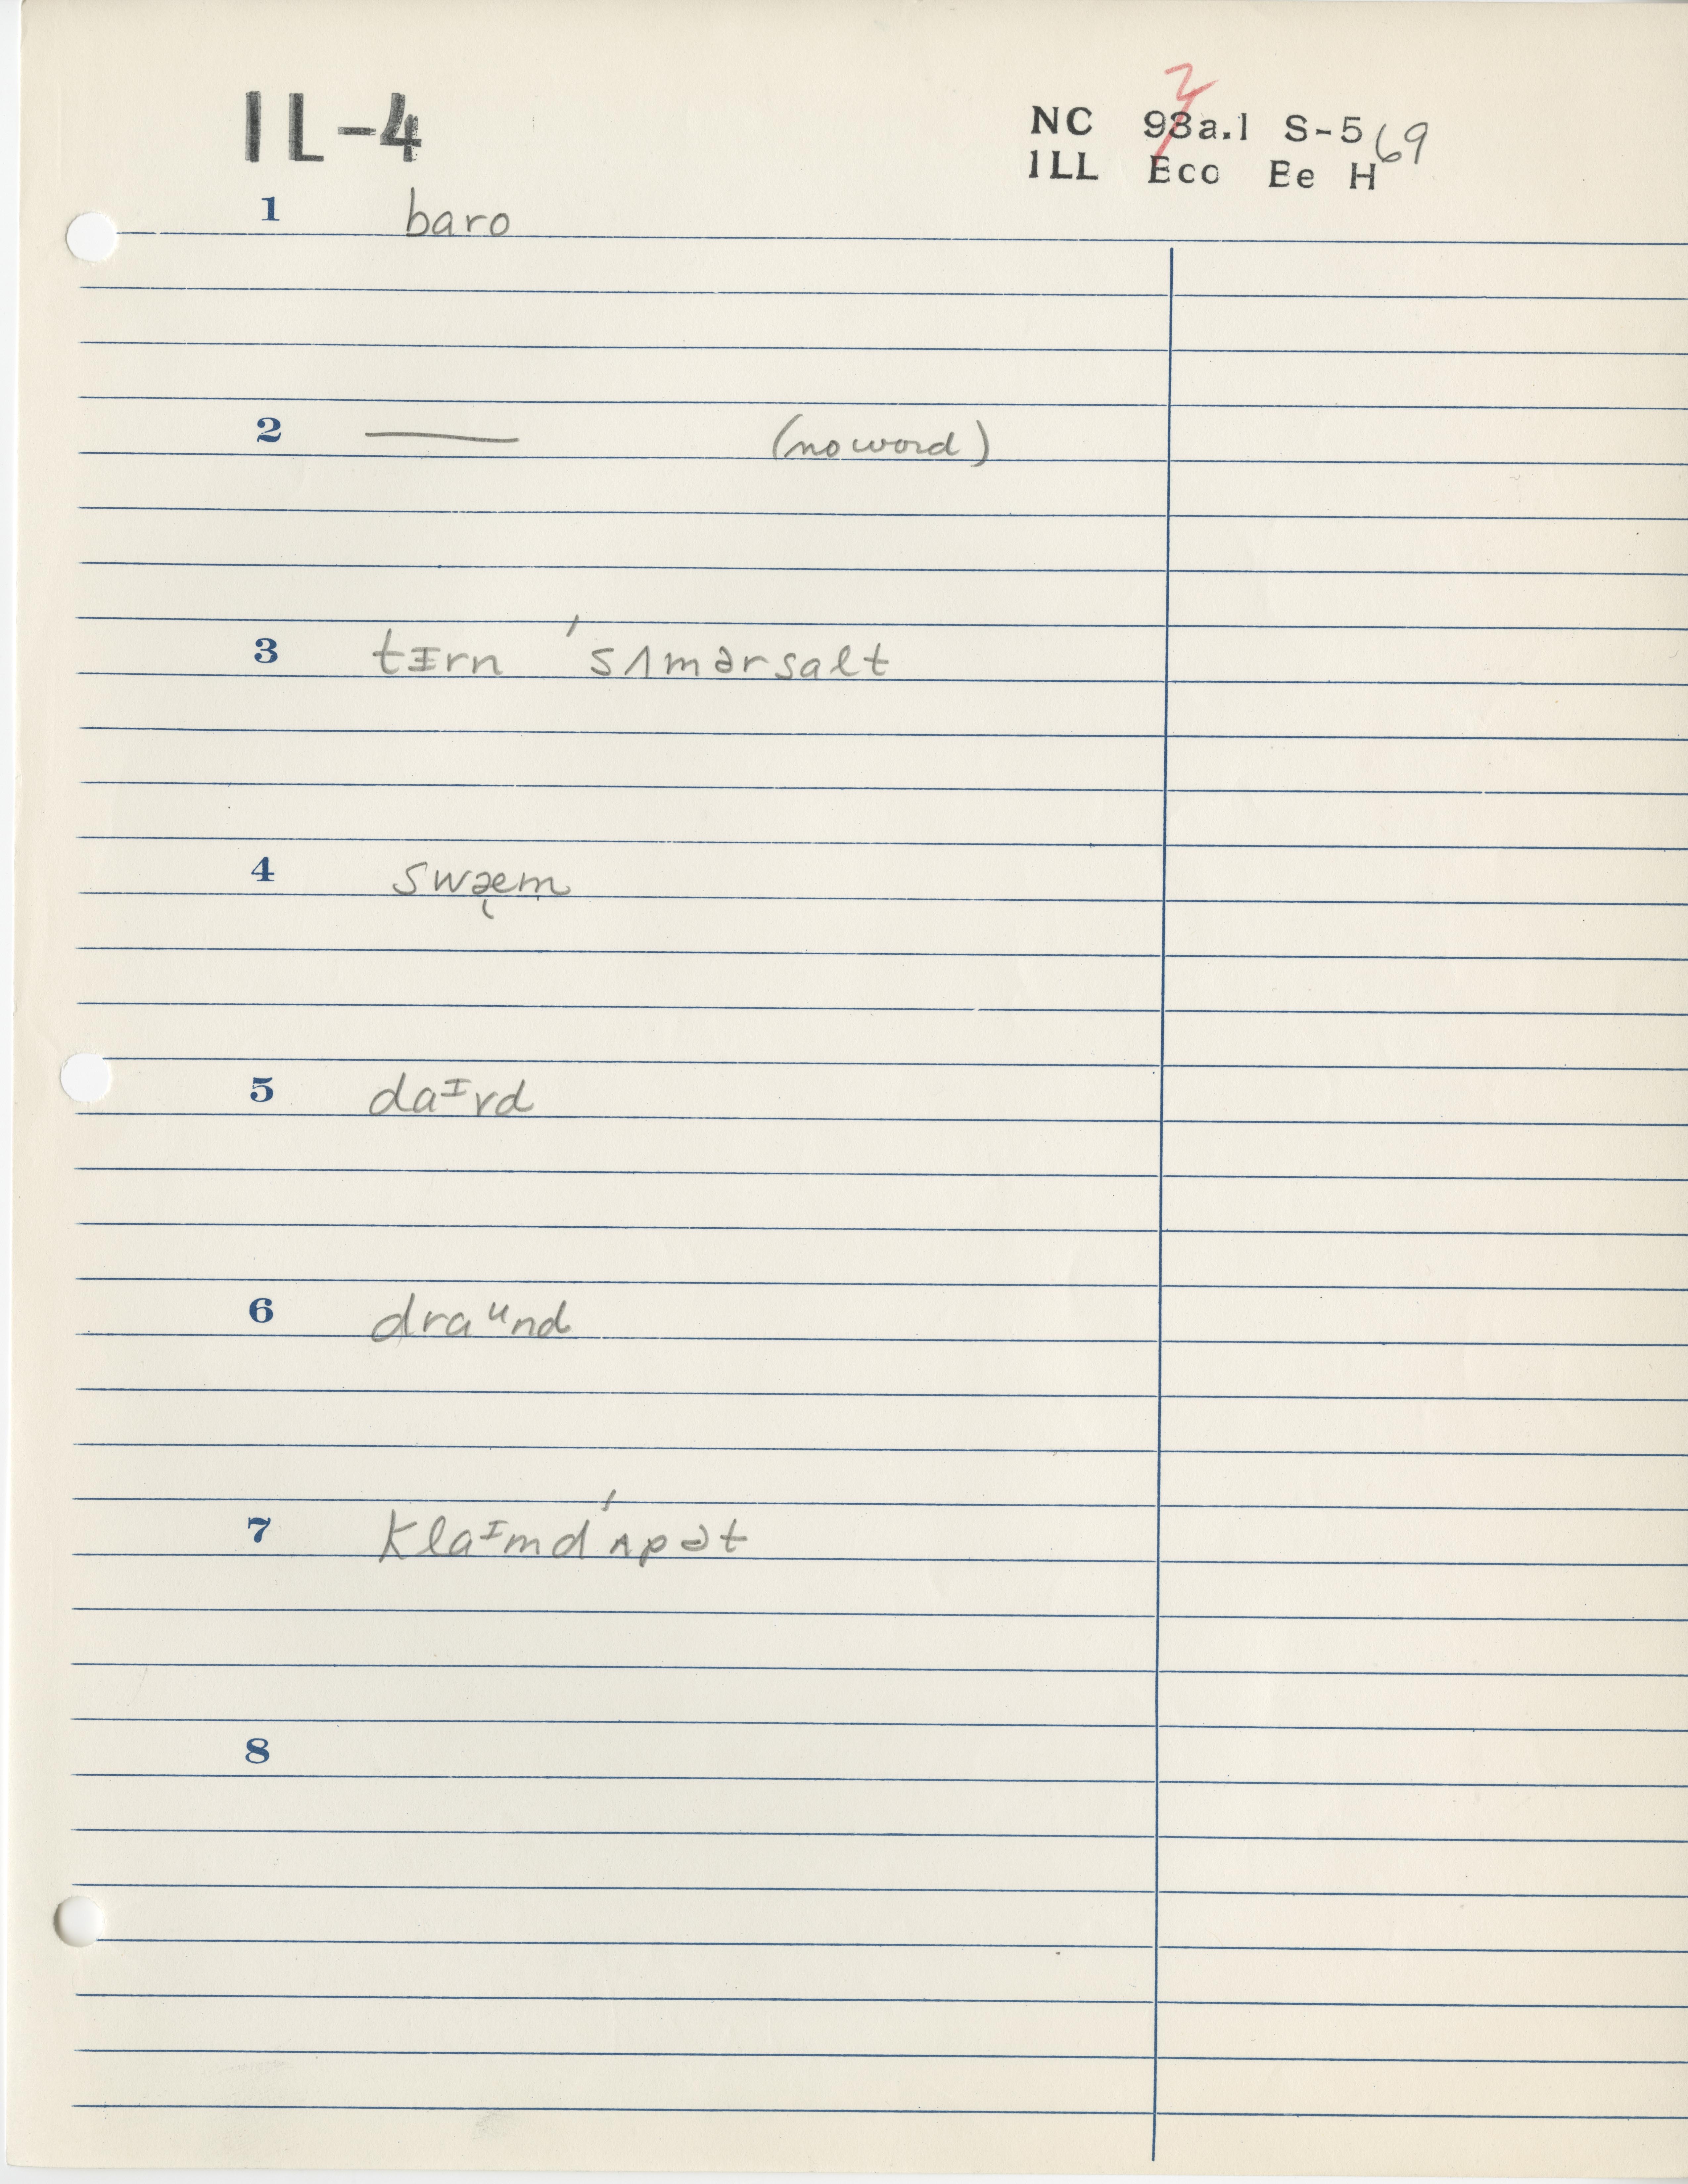 IL-4
2
NC 93a.1 S-5 69
ILL Eco Ee H
1 baro
2 — (no word)
3 tɪrn ˈsʌmərsalt
4 swæ̨m
5 daᶦrd
6 draᵘnd
7 klaᶦmd ˈʌpət
8